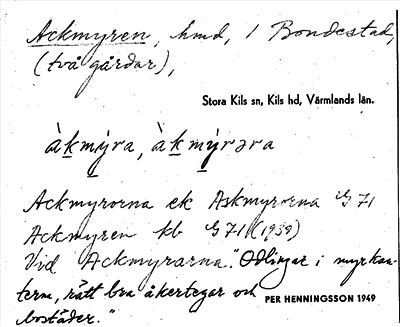 Ackmyren, hmd, 1 Bondestad,
(två gårdar),
Stora Kils sn, Kils hd, Värmlands län.
àkmýra, àkmýrəra
Ackmyrorna ek Askmyrorna G 71
Ackmyren kb G 71 (1939)
Vid Ackmyrarna. "Odlingar i myrkan-
term, rätt bra åkertegar och
PER HENNINGSSON 1949
bostäder."